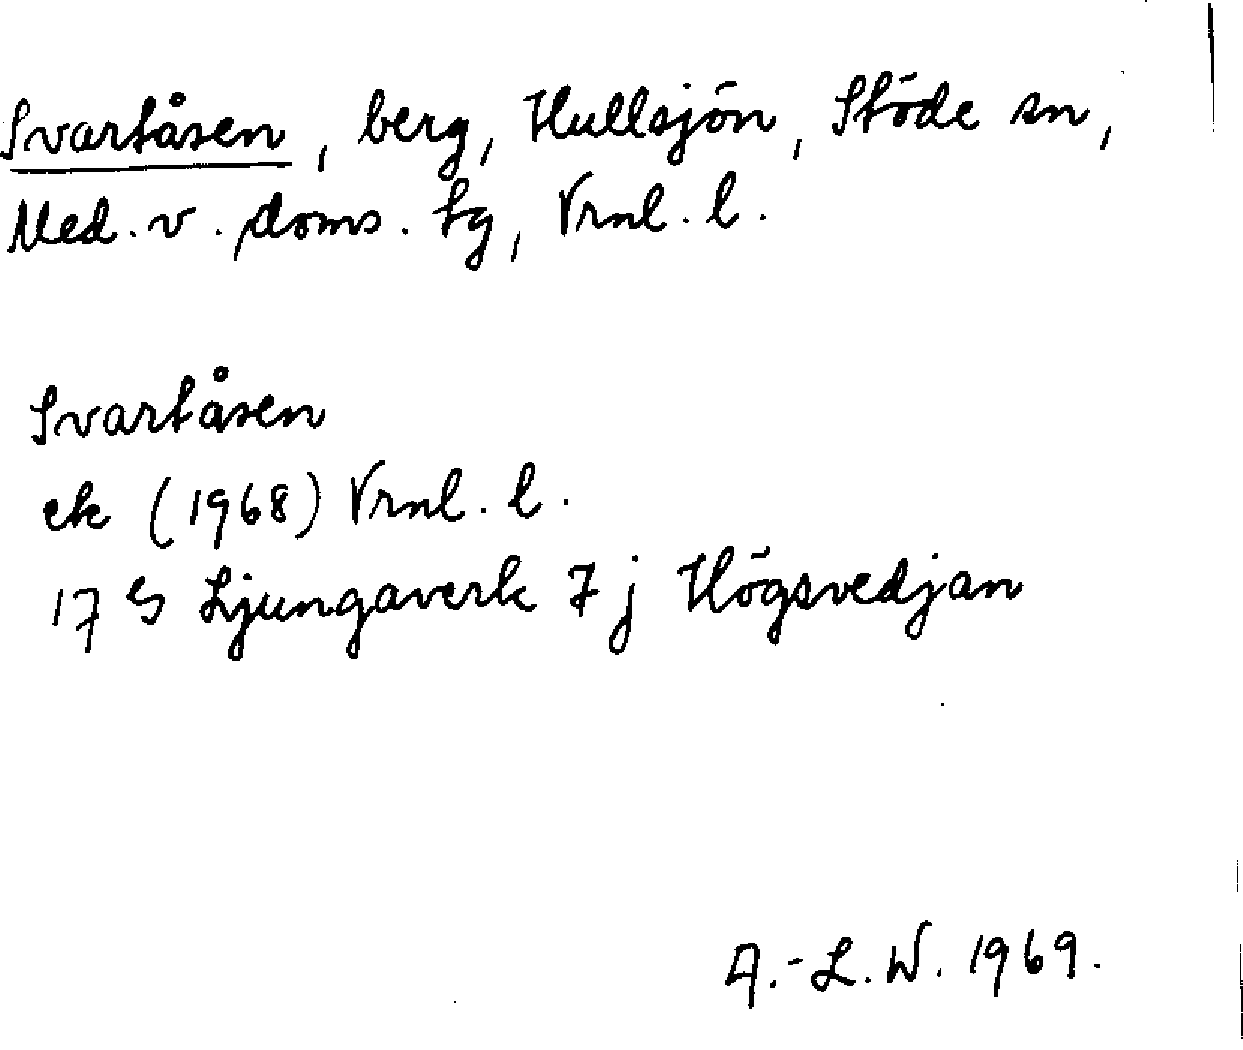 Svartåsen, berg, Hullsjön, Stöde sn,
Med. v. doms. tg, Vrnl. l.
Svartåsen
ek (1968) Vrnl. l.
17 G Ljungaverk 7 j Högsvedjan
A.-L. W. 1969.